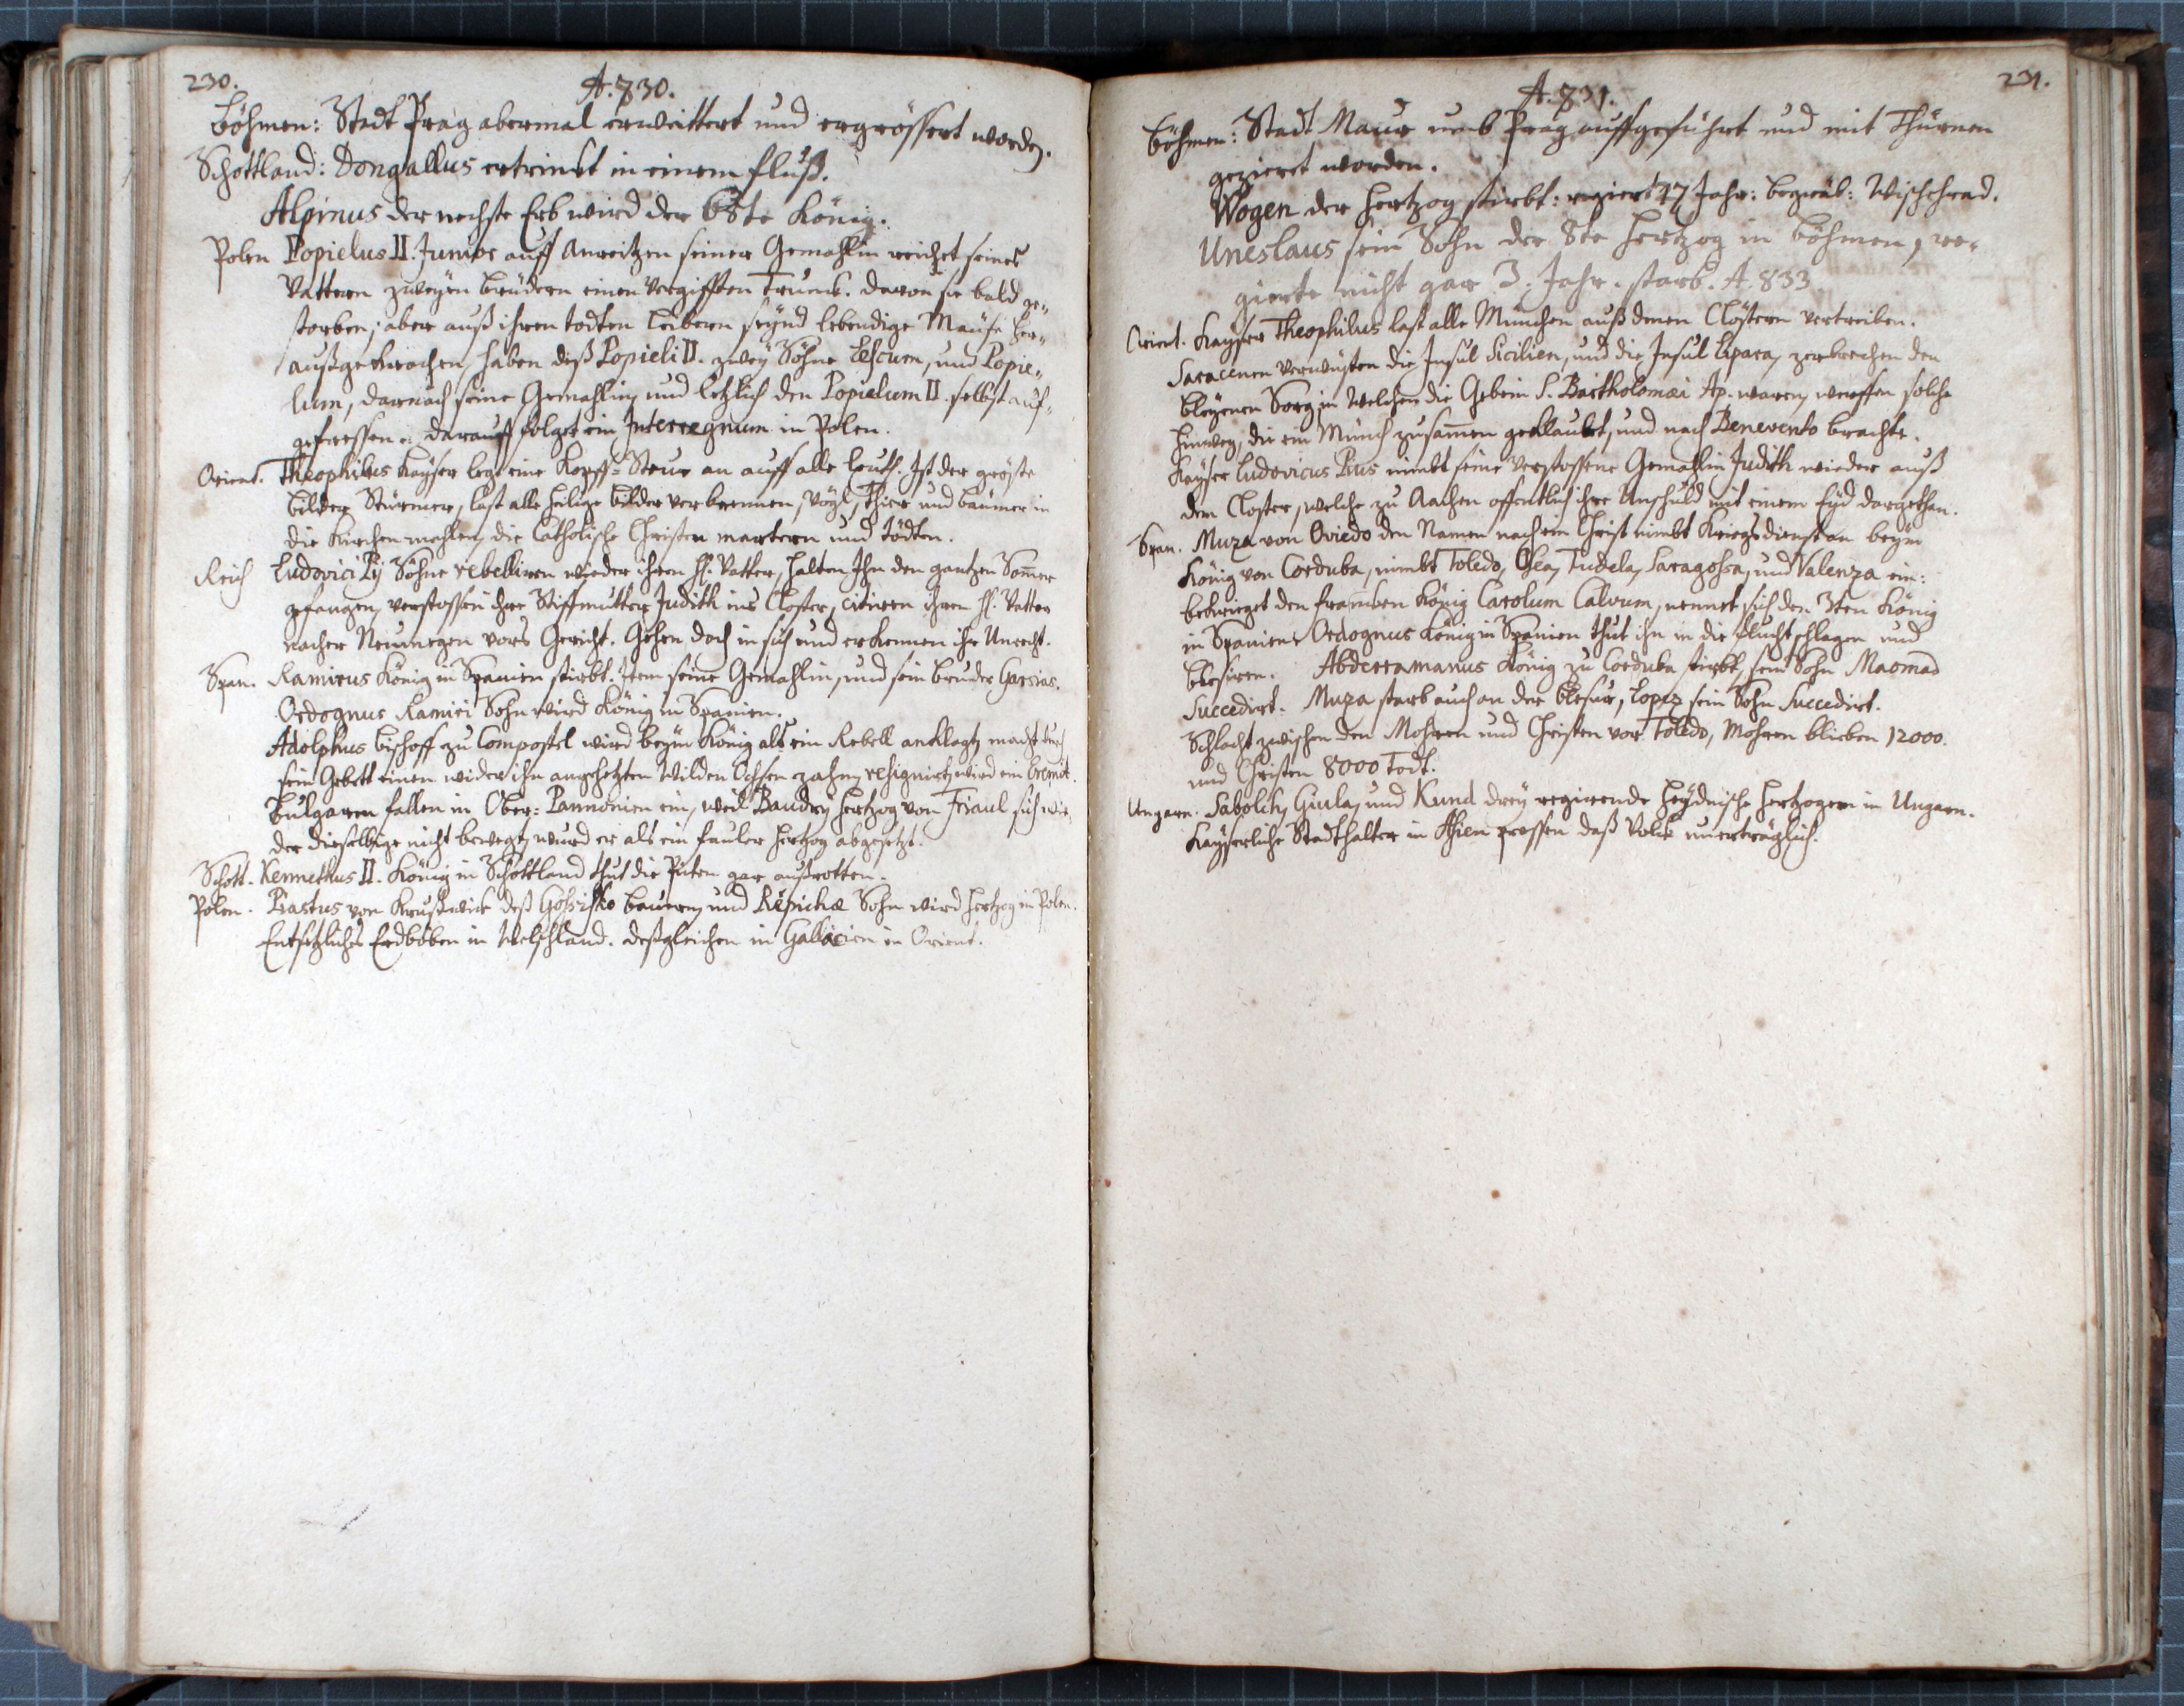 230.
A. 830.
Böhmen: Stadt Prag abermal erweittert und ergrössert worden.
Schottland: Dongallus ertrinckt in einem fluß.
Alpinus der nechste Erb wird der 68te König.
Polen Popielus II. Junior auff Anreitzen seiner Gemahlin reichet seines
Vattern zweyen Brüdern einen vergifften Trunck. davon sie bald ge-
storben; aber auß ihren todten Leibern seynd lebendige Mäuse her-
außgekrochen, haben deß Popieli II. zwey Söhne Lescum, und Popie-
lum, darnach seine Gemahlin, und letzlich den Popielum II. selbst auf-
gefressen. darauff folget ein Interregnum in Polen.
Orient. Theophilus Kayser legt eine Kopff-Steur an auff alle Leuth. Ist der gröste
bilder Stürmer, last alle heilige bilder verbrennen, Vögl, Thier und bäumer in
die Kirchen mahlen, die Catholische Christen martern und tödten.
Reich Ludovici Pÿ Söhne rebelliren wieder ihren H. Vatter, halten Ihn den gantzen Sommer
gefangen, verstossen ihre Stiffmutter Judith ins Closter, citiren ihren H. Vatter
nacher Neumegen vors Gericht. Gehen doch in sich und erkennen ihr Unrecht.
Span. Ramirus König in Spanien stirbt. Item seine Gemahlin, und sein bruder Garsias.
Ordognus Ramiri Sohn wird König in Spanien.
Adolphus bischoff zu Compostel wird beym König als ein Rebell anklagt, macht durch
sein Gebett einen wider ihn angehetzten wilden Ochsen zahm, resignirt, wird ein Eremit.
Bulgaren fallen in Ober-Pannonien ein, weil Baudry Hertzog von Friaul sich wie-
der dieselbige nicht bewegt, wurd er als ein fauler Hertzog abgesetzt.
Schott. Kennethus II. König in Schottland thut die Picten gar außrotten.
Polen. Piastus von Krußwick deß Gossisko bauern, und Repichæ Sohn wird Hertzog in Polen.
Entsetzliches Erdböben in Welschland. deßgleichen in Gallacien in Orient.
231.
A. 831.
Böhmen: Stadt Maur umb Prag auffgeführt und mit Thürnen
gezieret worden.
Wogen der Hertzog stirbt: regiert 47 Jahr: begrab: Wischehrad.
Uneslaus sein Sohn der 8te Hertzog in Böhmen, re-
gierte nicht gar 3. Jahr. starb. A. 833
Orient. Kayser Theophilus last alle München auß denen Clöstern vertreiben.
Saracenen verwüsten die Insul Sicilien, und die Insul Lipara, zerbrechen den
bleyenen Sarg, in welchen die Gebein S. Bartholomæi Ap. waren, werffen solche
hinweg, die ein Münch zusammen geklaubt, und nach Benevento brachte.
Kayser Ludovicus Pius nimbt seine verstossene Gemahlin Judith wieder auß
dem Closter, welche zu Aachen offentlich ihre Unschuld mit einem Eyd dargethan.
Span. Muza von Oviedo den Namen nach ein Christ nimbt Kriegsdienst an beym
König von Corduba, nimbt Toledo, Osca, Tudela, Saragossa, und Valenza ein:
bekrieget den francken König Carolum Calvum, nennet sich den 3ten König
in Spanien. Ordognus König in Spanien thut ihn in die flucht schlagen und
blesiren. Abderramanus König zu Corduba stirbt, sein Sohn Maomad
succedirt. Muza starb auch an der blesur, Lopez sein Sohn succedirt.
Schlacht zwischen den Mohren und Christen vor Toledo, Mohren blieben 12000.
und Christen 8000 Todt.
Ungarn. Sabolch, Giula, und Kund drey regirende Heydnische Hertzogen in Ungarn.
Kayserliche Stadthalter in pressen daß Volck unerträglich.